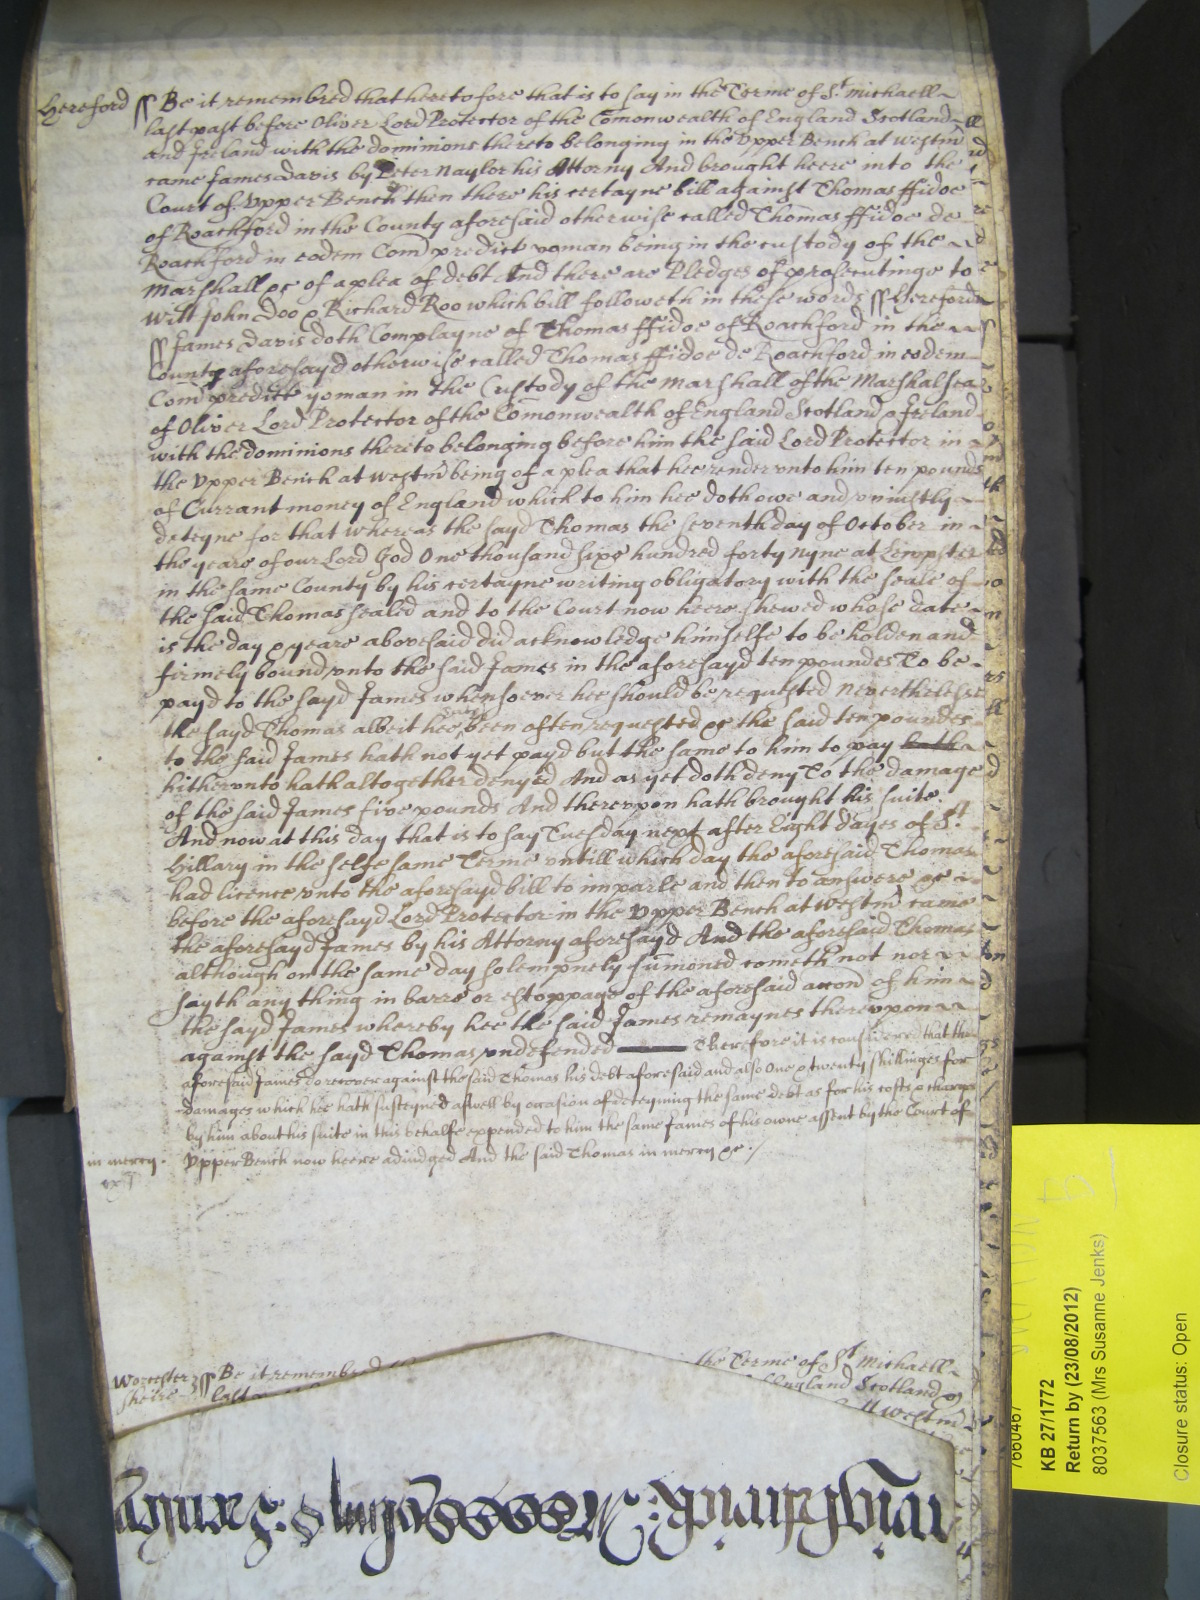 Hereford ss Be it remembred that heretofore that is to say in the Terme of St Michaell
last past before Oliver Lord Protector of the Comonwealth of England Scotland
and Ireland with the dominions thereto belonging in the Upper Bench at Westm
came James Davis by Peter Naylor his Attorny And brought heere into the
Court of Upper Bench then there his certayne bill against Thomas ffidoe
of Roachford in the County aforesaid otherwise called Thomas ffidoe de
Roachford in eodem Com predict yoman being in the custody of the
Marshall &c of a plea of debt And there are Pledges of prosecutinge to
witt John Doo & Richard Roo which bill followeth in these words ss Hereford
ss James Davis doth Complayne of Thomas ffidoe of Roachford in the
County aforesayd otherwise called Thomas ffidoe de Roachford in eodem
Com predict yoman in the Custody of the Marshall of the Marshalsea
of Oliver Lord Protector of the Comonwealth of England Scotland & Ireland
with the dominions thereto belonging before him the said Lord Protector in
the Upper Bench at Westm being of a plea that hee render unto him ten pounds
of Currant money of England which to him hee doth owe and uniustly
deteyne for that whereas the sayd Thomas the seventh day of October in
the yeare of our Lord God One thousand sixe hundred forty nyne at Lempster
in the same County by his certayne writing obligatory with the seale of
the said Thomas sealed and to the Court now heere shewed whose date
is the day & yeare abovesaid did acknowledge himselfe to be holden and
firmely bound unto the said James in the aforesayd ten poundes To be
payd to the sayd James whensoever hee should be requested Neverthelesse
the sayd Thomas albeit hee been often requested &c the said ten poundes
to the said James hath not yet payd but the same to him to pay hath
hitherunto hath altogether denyed And as yet doth deny To the damage
of the said James five pounds And thereupon hath brought his suite.
And now at this day that is to say Tuesday next after Eight dayes of St
Hillary in the selfe same Terme untill which day the aforesaid Thomas
had licence unto the aforesayd bill to imparle and then to answere &c
before the aforesayd Lord Protector in the Upper Bench at Westm came
the aforesayd James by his Attorny aforesayd And the aforesaid Thomas
although on the same day solempnely sumoned cometh not nor
sayth any thing in barre or estoppage of the aforesaid accon of him
the sayd James whereby hee the said James remaynes thereupon
against the sayd Thomas undefended Therefore it is considered that the
aforesaid James do recover against the said Thomas his debt aforesaid and also One & twenty shillinges for
damages which hee hath susteyned aswell by occasion of deteyning the same debt as for his costs & charges
by him about his suite in this behalfe expended to him the same James of his owne assent by the Court of
in mercy. Upper Bench now heere adiudged And the said Thomas in mercy &c./
Worcester ss Be it remembred the Terme of St Michaell
sheire last England Scotland &
Westm
7660467
KB 27/1772
Return by (23/08/2012)
8037563 (Mrs Susanne Jenks)
Closure status: Open